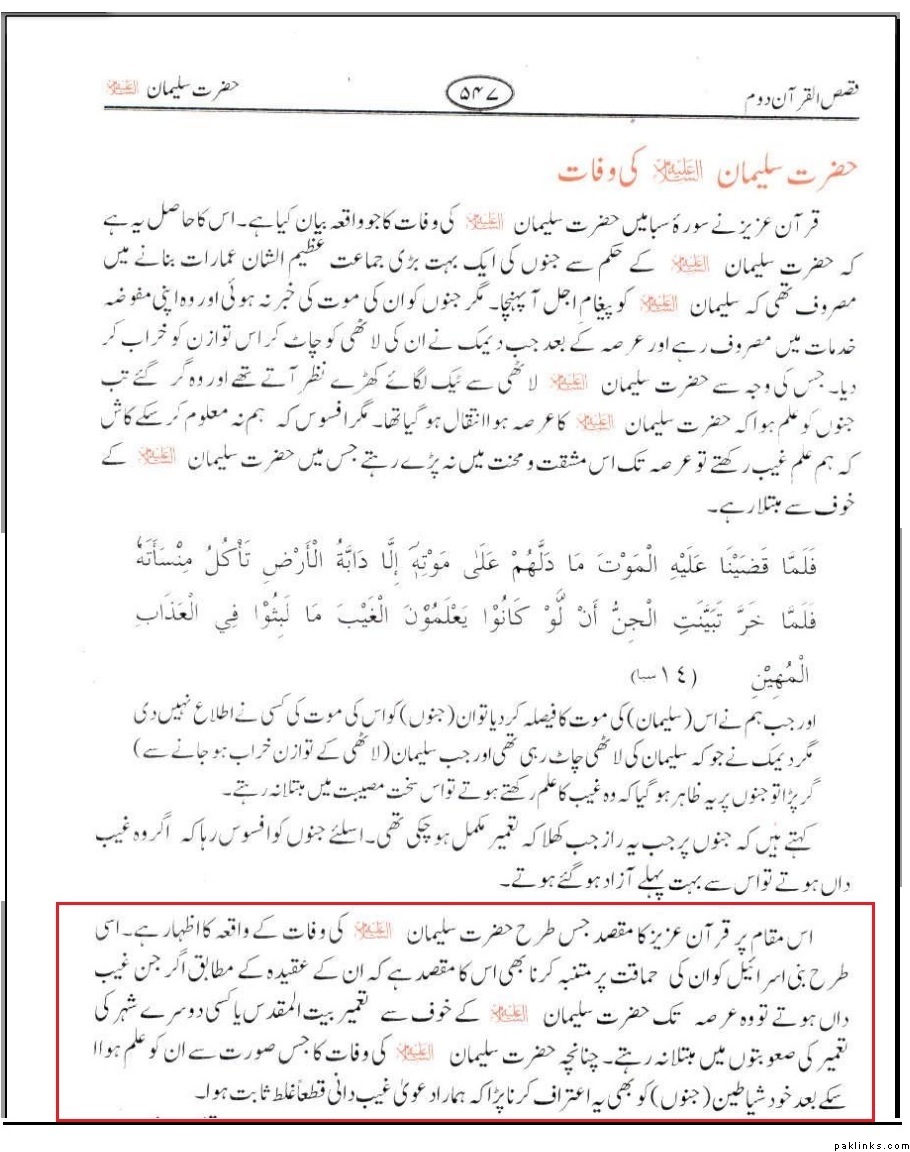 قصص القرآن دوم ۵۴۷ حضرت سلیمان علیہ السلام
حضرت سلیمان علیہ السلام کی وفات
قرآن عزیز نے سورۂ سبا میں حضرت سلیمان علیہ السلام کی وفات کا جو واقعہ بیان کیا ہے۔ اس کا حاصل یہ ہے
کہ حضرت سلیمان علیہ السلام کے حکم سے جنوں کی ایک بہت بڑی جماعت عظیم الشان عمارات بنانے میں
مصروف تھی کہ سلیمان علیہ السلام کو پیغام اجل آ پہنچا۔ مگر جنوں کو ان کی موت کی خبر نہ ہوئی اور وہ اپنی مفوضہ
خدمات میں مصروف رہے اور عرصہ کے بعد جب دیمک نے ان کی لاٹھی کو چاٹ کر اس توازن کو خراب کر
دیا۔ جس کی وجہ سے حضرت سلیمان علیہ السلام لاٹھی سے ٹیک لگائے کھڑے نظر آتے تھے اور وہ گر گئے تب
جنوں کو علم ہوا کہ حضرت سلیمان علیہ السلام کا عرصہ ہوا انتقال ہو گیا تھا۔ مگر افسوس کہ ہم نہ معلوم کر سکے کاش
کہ ہم علم غیب رکھتے تو عرصہ تک اس مشقت و محنت میں نہ پڑے رہتے جس میں حضرت سلیمان علیہ السلام کے
خوف سے مبتلا رہے۔
فَلَمَّا قَضَيْنَا عَلَيْهِ الْمَوْتَ مَا دَلَّهُمْ عَلٰى مَوْتِهٖٓ إِلَّا دَابَّةُ الْأَرْضِ تَأْكُلُ مِنْسَأَتَهٗ
فَلَمَّا خَرَّ تَبَيَّنَتِ الْجِنُّ أَنْ لَّوْ كَانُوْا يَعْلَمُوْنَ الْغَيْبَ مَا لَبِثُوْا فِي الْعَذَابِ
الْمُهِيْنِ (١٤ سبا)
اور جب ہم نے اس (سلیمان) کی موت کا فیصلہ کر دیا تو ان (جنوں) کو اس کی موت کی کسی نے اطلاع نہیں دی
مگر دیمک نے جو کہ سلیمان کی لاٹھی چاٹ رہی تھی اور جب سلیمان (لاٹھی کے توازن خراب ہو جانے سے)
گر پڑا تو جنوں پر یہ ظاہر ہو گیا کہ وہ غیب کا علم رکھتے ہوتے تو اس سخت مصیبت میں مبتلا نہ رہتے۔
کہتے ہیں کہ جنوں پر جب یہ راز جب کھلا کہ تعمیر مکمل ہو چکی تھی۔ اسلئے جنوں کو افسوس رہا کہ اگر وہ غیب
داں ہوتے تو اس سے بہت پہلے آزاد ہو گئے ہوتے۔
اس مقام پر قرآن عزیز کا مقصد جس طرح حضرت سلیمان علیہ السلام کی وفات کے واقعہ کا اظہار ہے۔ اسی
طرح بنی اسرائیل کو ان کی حماقت پر متنبہ کرنا بھی اس کا مقصد ہے کہ ان کے عقیدہ کے مطابق اگر جن غیب
داں ہوتے تو وہ عرصہ تک حضرت سلیمان علیہ السلام کے خوف سے تعمیر بیت المقدس یا کسی دوسرے شہر کی
تعمیر کی صعوبتوں میں مبتلا نہ رہتے۔ چنانچہ حضرت سلیمان علیہ السلام کی وفات کا جس صورت سے ان کو علم ہوا ا
سکے بعد خود شیاطین (جنوں) کو بھی یہ اعتراف کرنا پڑا کہ ہمارا دعویٰ غیب دانی قطعاً غلط ثابت ہوا۔
paklinks.com